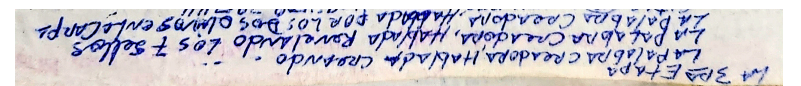 LA 3RA ETAPA
LA PALABRA CREADORA, HABLADA CREANDO
LA PALABRA CREADORA, HABLADA REVELANDO LOS 7 SELLOS
LA PALABRA CREADORA, HABLADA POR LOS DOS OLIVOS EN LA CARPA